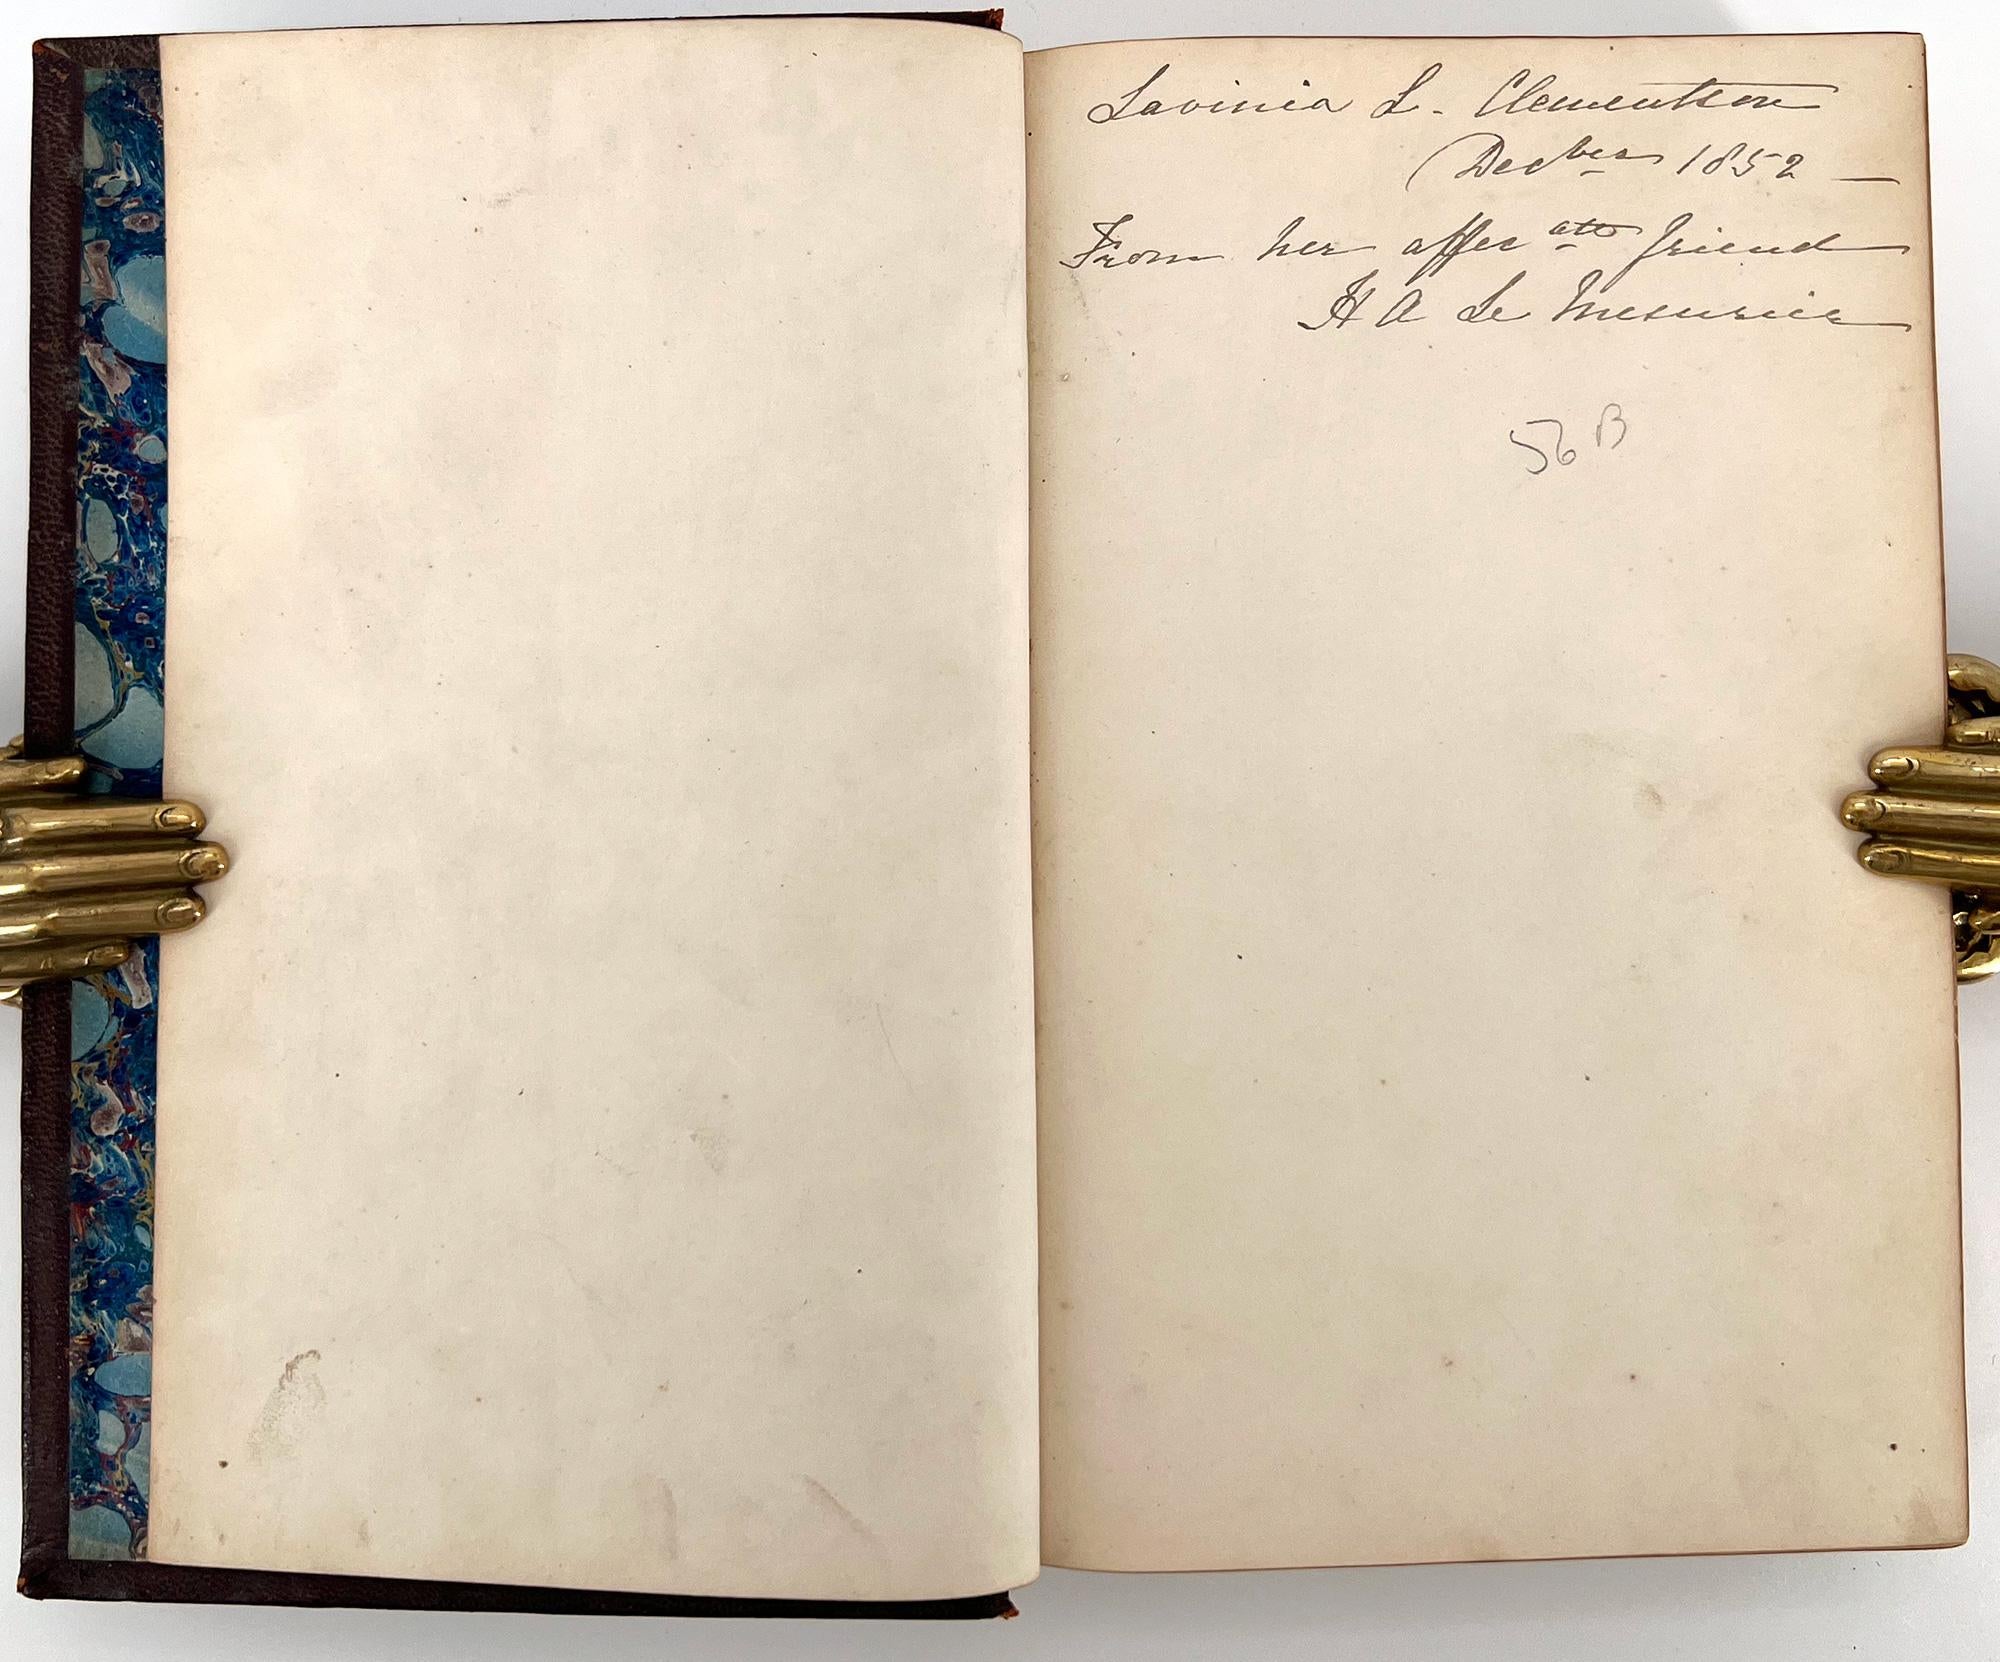 Lavinia L. Clementson
Decber 1852 —
From her affecate friend
H A Le Mesurier
56 B